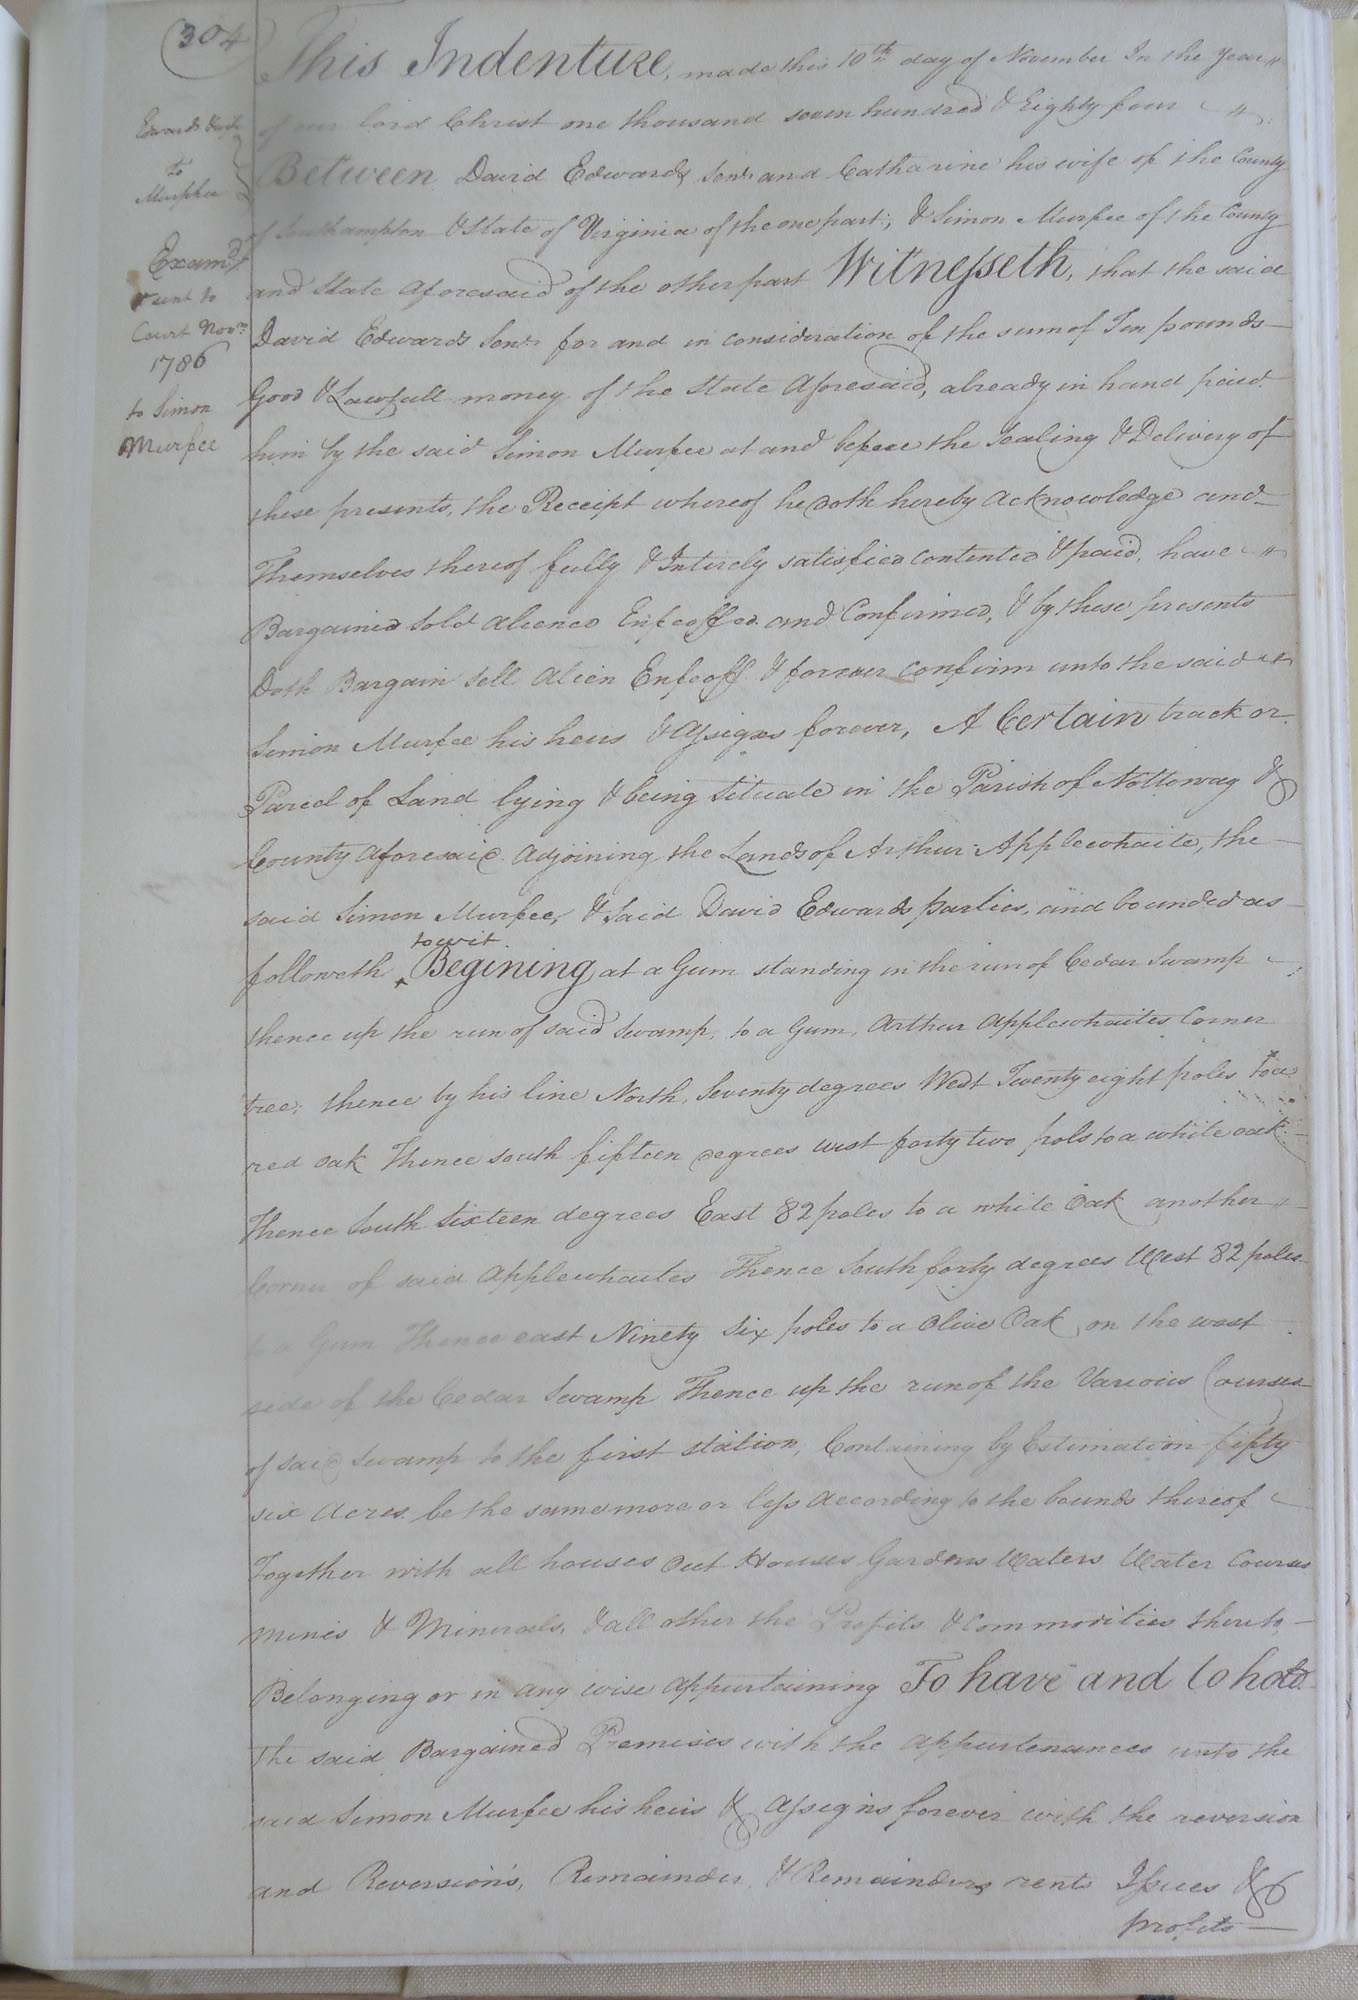 304
This Indenture, made this 10th day of November In the Year
of our lord Christ one thousand seven hundred & Eighty four
Between David Edwards Senr. and Catharine his wife of the County
of Southampton & State of Virginia of the one part; & Simon Murfee of the County
and State Aforesaid of the other part Witnesseth, that the said
David Edwards Senr. for and in consideration of the sum of Ten pounds
Good & Lawfull money of the State Aforesaid, already in hand paid
him by the said Simon Murfee at and before the Sealing & Delivery of
these presents, the Receipt whereof he doth hereby Acknowledge and
Themselves thereof fully & Intirely satisfied contented & paid, have
Bargained Sold Aliened Enfeoffed and Confirmed, & by these presents
Doth Bargain Sell Alien Enfeoff & forever confirm unto the said
Simon Murfee his heirs & Assigns forever, A Certain track or
Parcel of Land lying & being Situate in the Parish of Nottoway &
County Aforesaid Adjoining the Lands of Arthur Applewhaite, the
said Simon Murfee, & Said David Edwards parties, and bounded as
followeth to wit Begining at a Gum standing in the run of Cedar Swamp
thence up the run of said Swamp, to a Gum, Arthur Applewhaites Corner
tree; thence by his line North, Seventy degrees West Twenty eight poles to a
red oak Thence south fifteen degrees west forty two pols to a white oak
Thence South Sixteen degrees East 82 poles to a white Oak another
Corner of said Applewhaites Thence South forty degrees West 82 poles
to a Gum Thence east Ninety Six poles to a Olive Oak, on the west
side of the Cedar Swamp Thence up the run of the Various Courses
of said Swamp to the first station; Containing by Estimation fifty
six Acres be the same more or less According to the bounds thereof
Together with all houses Out Houses Gardens Waters Water Courses
mines & Minerals, & all other the Profits & Commodities thereto
Belonging or in any wise Appurtaining To have and to hold
The said Bargained Premises with the Appurtenances unto the
said Simon Murfee his heirs & Assigns forever with the reversion
and Reversions, Remainder & Remainders rents Issues &
profits
Edwards & wife
to
Murphee
Examd.
& sent to
Court Novr.
1786
to Simon
Murfee